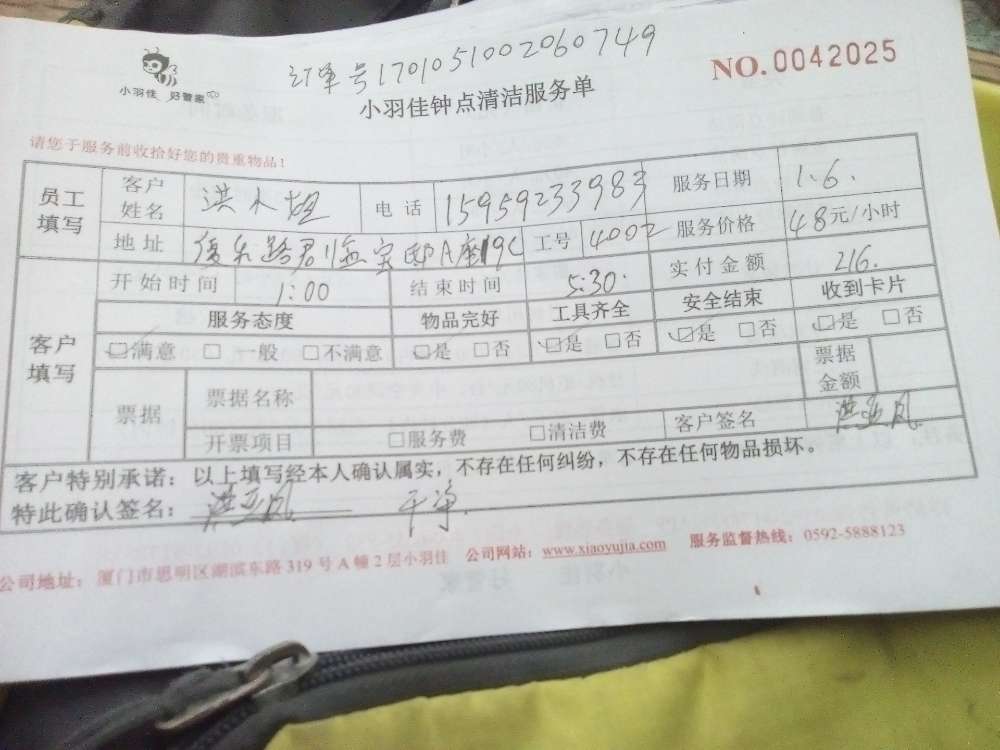 订单号17010510020607​49
NO.0042025
小羽佳 好管家
小羽佳钟点清洁服务单
请您于服务前收拾好您的贵重物品！
员工填写 客户姓名 洪 电话 15959233983 服务日期 1.6.
地址 A座19C 工号 4002 服务价格 48元/小时
客户填写 开始时间 1:00 结束时间 5:30. 实付金额 216.
服务态度 物品完好 工具齐全 安全结束 收到卡片
☑满意 □一般 □不满意 ☑是 □否 ☑是 □否 ☑是 □否 ☑是 □否
票据 票据名称 票据金额
开票项目 □服务费 □清洁费 客户签名 洪亚凤
客户特别承诺：以上填写经本人确认属实，不存在任何纠纷，不存在任何物品损坏。
特此确认签名：洪亚凤 干净.
公司地址：厦门市思明区湖滨东路319号A幢2层小羽佳 公司网站：www.xiaoyujia.com 服务监督热线：0592-5888123